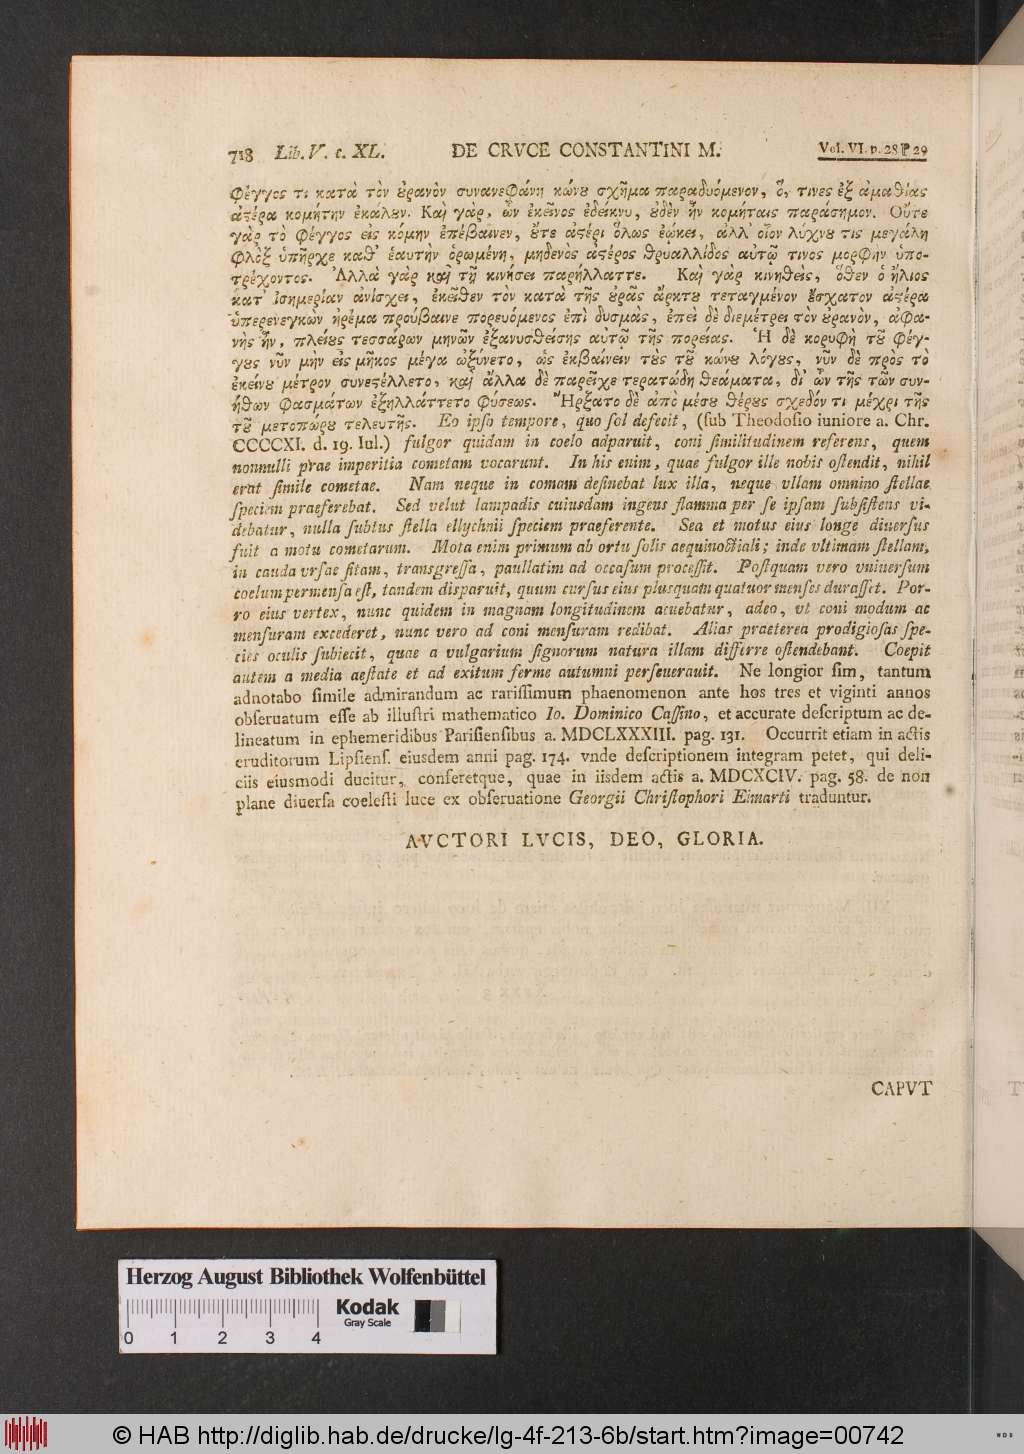 718 Lib. V. c. XL. DE CRVCE CONSTANTINI M. Vol. VI. p. 28 P 29
φέγγος τι κατὰ τὸν ȣ̓ρανὸν συνανεφάνη κώνȣ σχῆμα παραδυόμενον, ὅ, τινες ἐξ ἀμαθίας
ἀϛέρα κομήτην ἐκάλȣν. Καὶ γὰρ, ὧν ἐκεῖνος ἐδείκνυ, ȣ̓δὲν ἦν κομήταις παράσημον. Οὔτε
γὰρ τὸ φέγγος εἰς κόμην ἐπέβαινεν, ȣ̓́τε ἀϛέρι ὅλως ἐῴκει, ἀλλ' οἷον λύχνȣ τις μεγάλη
φλὸξ ὑπῆρχε καθ' ἑαυτὴν ὁρωμένη, μηδενὸς ἀϛέρος θρυαλλίδος αὐτῷ τινος μορφὴν ὑπο-
τρέχοντος. Ἀλλὰ γὰρ καὶ τῇ κινήσει παρήλλαττε. Καὶ γὰρ κινηθεὶς, ὅθεν ὁ ἥλιος
κατ' ἰσημερίαν ἀνίσχει, ἐκεῖθεν τὸν κατὰ τῆς ȣ̓ρᾶς ἄρκτȣ τεταγμένον ἔσχατον ἀϛέρα
ὑπερενεγκὼν ἠρέμα πρȣ́βαινε πορευόμενος ἐπὶ δυσμάς, ἐπεὶ δὲ διεμέτρει τὸν ȣ̓ρανὸν, ἀφα-
νὴς ἦν, πλείȣς τεσσάρων μηνῶν ἐξανυσθείσης αὐτῷ τῆς πορείας. Ἡ δὲ κορυφὴ τȣ͂ φέγ-
γȣς νῦν μὴν εἰς μῆκος μέγα ὠξύνετο, ὡς ἐκβαίνειν τȣ̀ς τȣ͂ κώνȣ λόγȣς, νῦν δὲ πρὸς τὸ
ἐκείνȣ μέτρον συνεϛέλλετο, καὶ ἄλλα δὲ παρεῖχε τερατώδη θεάματα, δι' ὧν τῆς τῶν συν-
ήθων φασμάτων ἐξηλλάττετο φύσεως. Ἤρξατο δὲ ἀπὸ μέσȣ θέρȣς σχεδόν τι μέχρι τῆς
τȣ͂ μετοπώρȣ τελευτῆς. Eo ipso tempore, quo sol defecit, (sub Theodosio iuniore a. Chr.
CCCCXI. d. 19. Iul.) fulgor quidam in coelo adparuit, coni similitudinem referens, quem
nonnulli prae imperitia cometam vocarunt. In his enim, quae fulgor ille nobis ostendit, nihil
erat simile cometae. Nam neque in comam desinebat lux illa, neque vllam omnino stellae
speciem praeferebat. Sed velut lampadis cuiusdam ingens flamma per se ipsam subsistens vi-
debatur, nulla subtus stella ellychnii speciem praeferente. Sea et motus eius longe diuersus
fuit a motu cometarum. Mota enim primum ab ortu solis aequinoctiali; inde vltimam stellam,
in cauda vrsae sitam, transgressa, paullatim ad occasum processit. Postquam vero vniuersum
coelum permensa est, tandem disparuit, quum cursus eius plusquam quatuor menses durasset. Por-
ro eius vertex, nunc quidem in magnam longitudinem acuebatur, adeo, vt coni modum ac
mensuram excederet, nunc vero ad coni mensuram redibat. Alias praeterea prodigiosas spe-
cies oculis subiecit, quae a vulgarium signorum natura illam differre ostendebant. Coepit
autem a media aestate et ad exitum ferme autumni perseuerauit. Ne longior sim, tantum
adnotabo simile admirandum ac rarissimum phaenomenon ante hos tres et viginti annos
obseruatum esse ab illustri mathematico Io. Dominico Cassino, et accurate descriptum ac de-
lineatum in ephemeridibus Parisiensibus a. MDCLXXXIII. pag. 131. Occurrit etiam in actis
eruditorum Lipsiens. eiusdem anni pag. 174. vnde descriptionem integram petet, qui deli-
ciis eiusmodi ducitur, conferetque, quae in iisdem actis a. MDCXCIV. pag. 58. de non
plane diuersa coelesti luce ex obseruatione Georgii Christophori Eimarti traduntur.
AVCTORI LVCIS, DEO, GLORIA.
CAPVT
Herzog August Bibliothek Wolfenbüttel
Kodak
Gray Scale
0 1 2 3 4
© HAB http://diglib.hab.de/drucke/lg-4f-213-6b/start.htm?image=00742